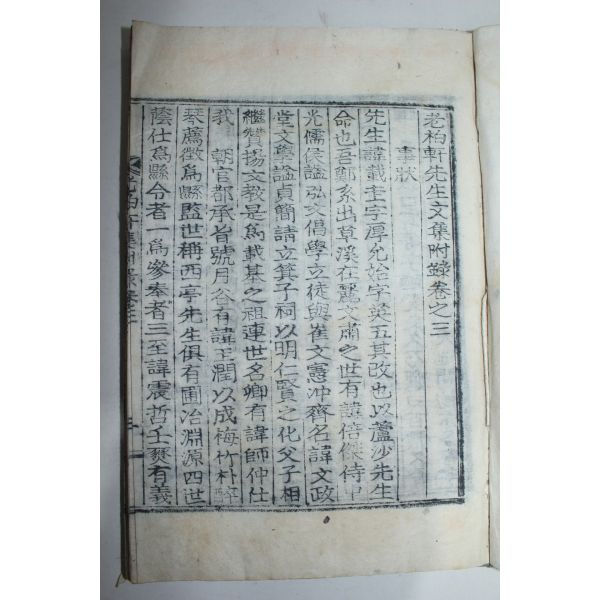 老柏軒先生文集附錄卷之三
事狀
先生諱載圭字厚允始字英五其改也以蘆沙先生
命也吾鄭系出草溪在麗文肅之世有諱倍傑侍中
光儒侯謚弘文倡學立徒與崔文憲冲齊名諱文政
堂文學謚貞簡請立箕子祠以明仁賢之化父子相
繼贊揚文敎是爲載基之祖連世名卿有諱師仲仕
我 朝官都承旨號月谷有諱玉潤以成梅竹朴醉
琴薦徵爲縣監世稱西亭先生俱有圃冶淵源四世
蔭仕爲縣令者一爲參奉者三至諱震哲壬燹有義